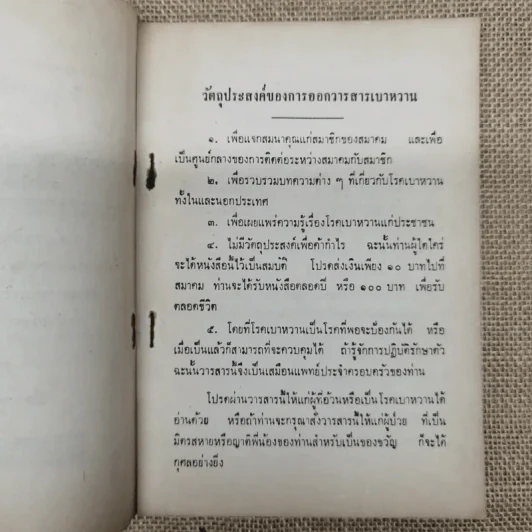 วัตถุประสงค์ของการออกวารสารเบาหวาน
๑. เพื่อแจกสมนาคุณแก่สมาชิกของสมาคม และเพื่อ
เป็นศูนย์กลางของการติดต่อระหว่างสมาคมกับสมาชิก
๒. เพื่อรวบรวมบทความต่าง ๆ ที่เกี่ยวกับโรคเบาหวาน
ทั้งในและนอกประเทศ
๓. เพื่อเผยแพร่ความรู้เรื่องโรคเบาหวานแก่ประชาชน
๔. ไม่มีวัตถุประสงค์เพื่อค้ากำไร ฉะนั้นท่านผู้ใดใคร่
จะได้หนังสือนี้ไว้เป็นสมบัติ โปรดส่งเงินเพียง ๑๐ บาทไปที่
สมาคม ท่านจะได้รับหนังสือตลอดปี หรือ ๑๐๐ บาท เพื่อรับ
ตลอดชีวิต
๕. โดยที่โรคเบาหวานเป็นโรคที่พอจะป้องกันได้ หรือ
เมื่อเป็นแล้วก็สามารถที่จะควบคุมได้ ถ้ารู้จักการปฏิบัติรักษาตัว
ฉะนั้นวารสารนี้จึงเป็นเสมือนแพทย์ประจำครอบครัวของท่าน
โปรดผ่านวารสารนี้ให้แก่ผู้ที่อ้วนหรือเป็นโรคเบาหวานได้
อ่านด้วย หรือถ้าท่านจะกรุณาสั่งวารสารนี้ให้แก่ผู้ป่วย ที่เป็น
มิตรสหายหรือญาติพี่น้องของท่านสำหรับเป็นของขวัญ ก็จะได้
กุศลอย่างยิ่ง